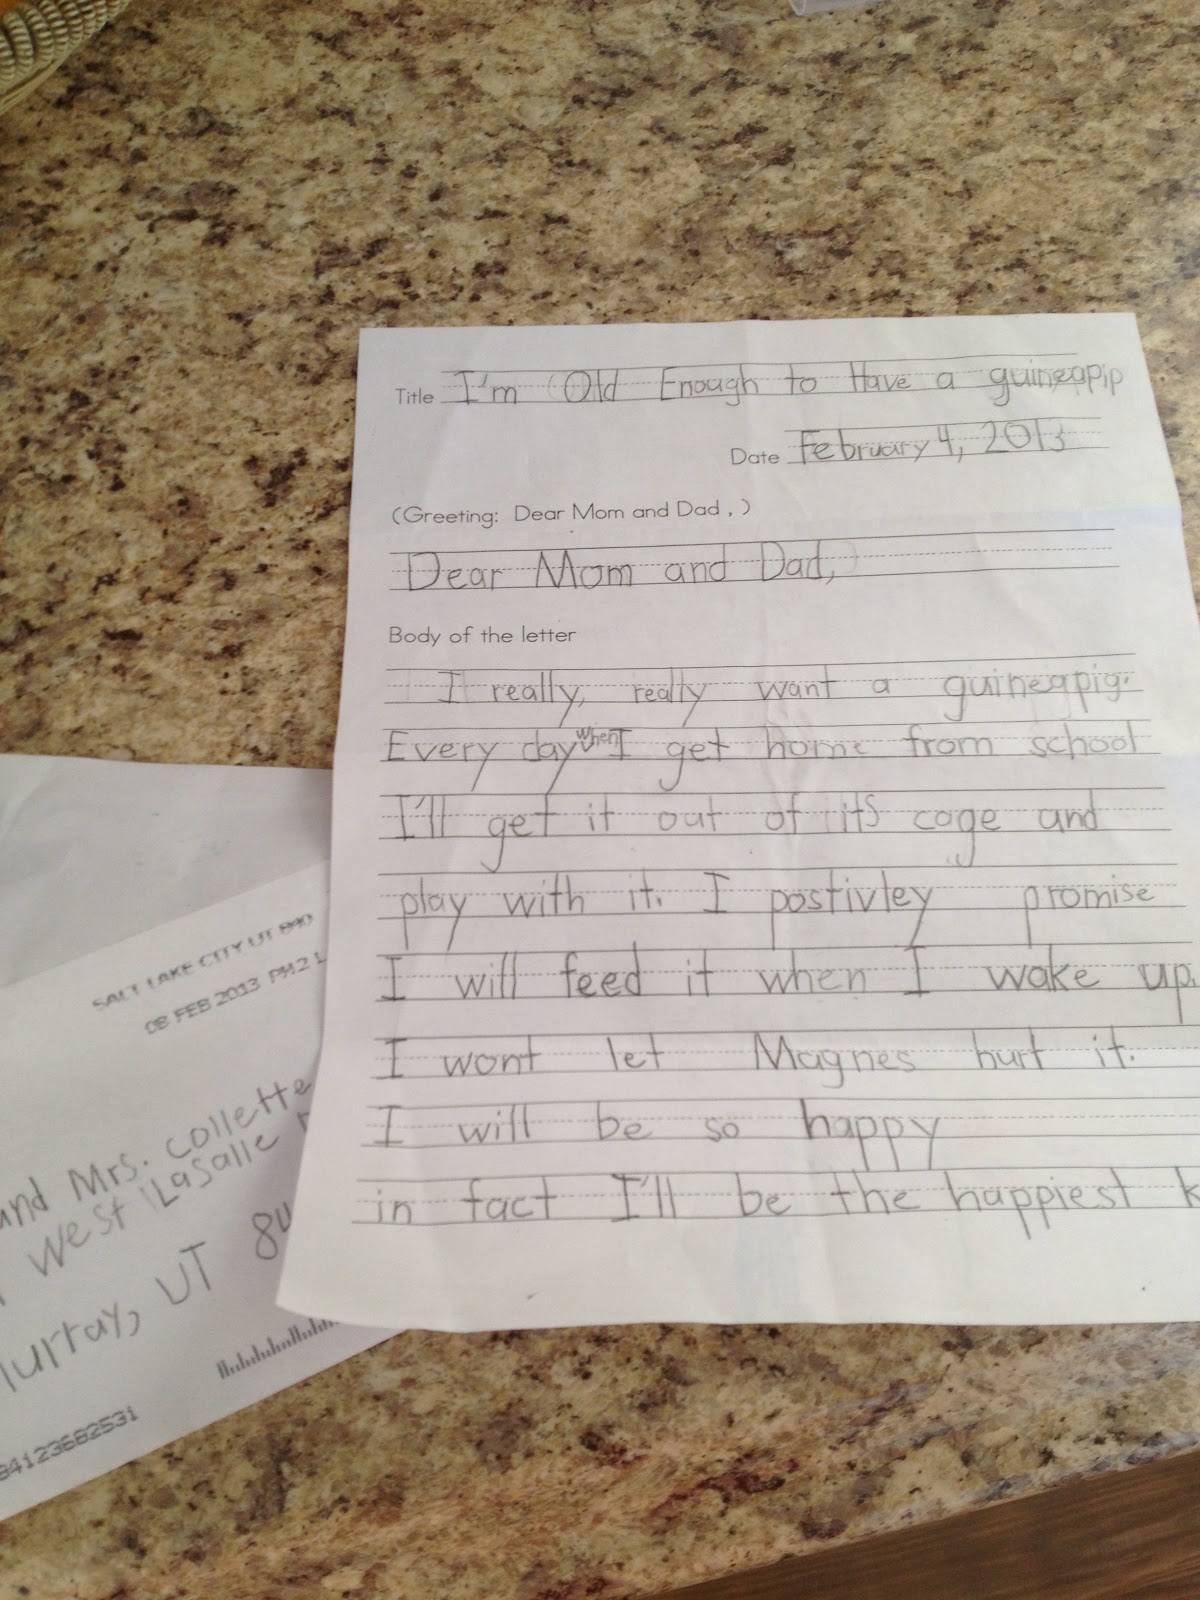 Title I'm Old Enough to Have a guineapip
Date February 4, 2013
(Greeting: Dear Mom and Dad , )
Dear Mom and Dad,
Body of the letter
I really, really want a guineapig.
Every day when I get home from school
I'll get it out of its cage and
play with it. I postivley promise
I will feed it when I wake up.
I wont let Magnes hurt it.
I will be so happy
in fact I'll be the happiest k
SALT LAKE CITY UT 840
08 FEB 2013 PM 2 L
and Mrs. Collette
West LaSalle
Murray, UT 84
84123682531